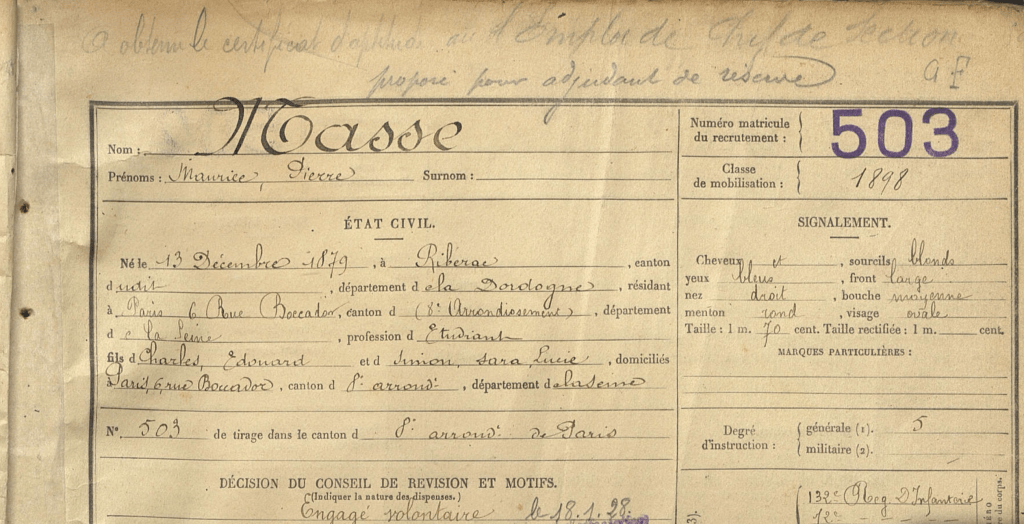 a obtenu le certificat d'aptitude à l'Emploi de Chef de Section
proposé pour adjudant de réserve
Nom : Masse
Prénoms : Maurice, Pierre Surnom :
Numéro matricule
du recrutement : 503
Classe
de mobilisation : 1898
ÉTAT CIVIL.
Né le 13 Décembre 1879, à Ribérac, canton
dudit, département de la Dordogne, résidant
à Paris 6 Rue Boccador, canton d (8e Arrondissement), département
de la Seine, profession d'Etudiant
fils d Charles, Edouard et d Simon, Sara, Lucie, domiciliés
à Paris, 6 rue Boccador, canton d 8e arrondt, département de la Seine
SIGNALEMENT.
Cheveux et, sourcils blonds
yeux bleus, front large
nez droit, bouche moyenne
menton rond, visage ovale
Taille : 1 m. 70 cent. Taille rectifiée : 1 m. cent.
MARQUES PARTICULIÈRES :
N° 503 de tirage dans le canton d 8e arrondt de Paris
Degré
d'instruction :
générale (1). 5
militaire (2).
DÉCISION DU CONSEIL DE REVISION ET MOTIFS.
(Indiquer la nature des dispenses.)
Engagé volontaire le 18.1.28.
132e Rég D'Infanterie